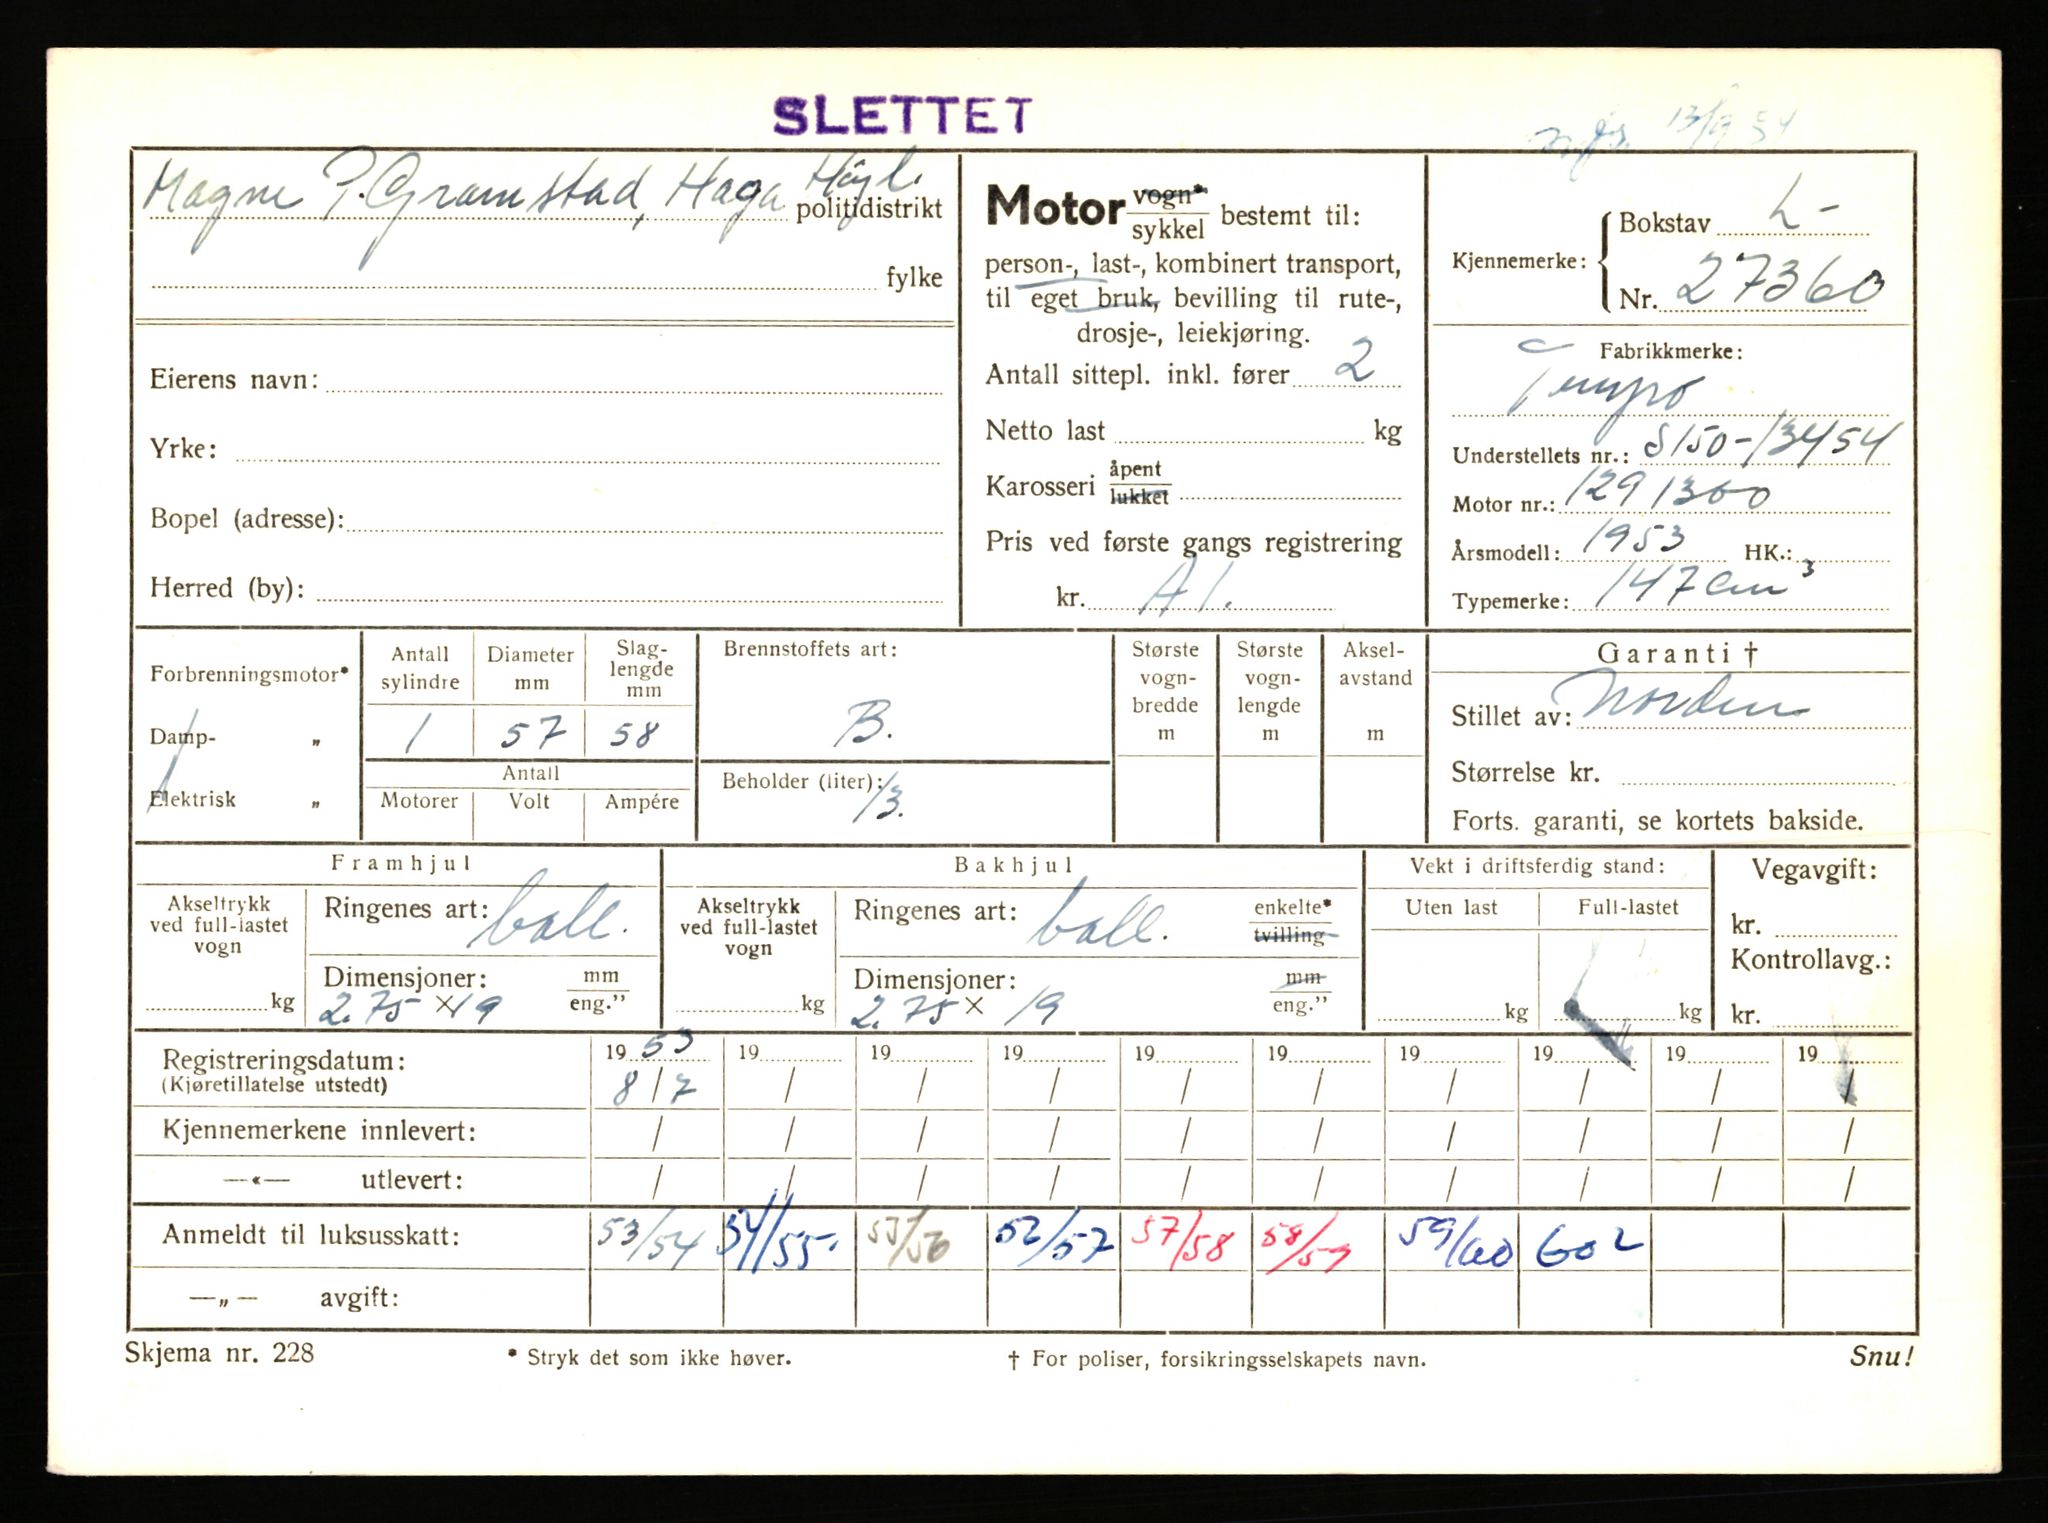 SLETTET
13/9 54
Magne P. Gramstad, Haga Høyl.
politidistrikt
fylke
Eierens navn:
Yrke:
Bopel (adresse):
Herred (by):
Motor vogn*
sykkel bestemt til:
person-, last-, kombinert transport,
til eget bruk, bevilling til rute-,
drosje-, leiekjøring.
Antall sittepl. inkl. fører 2
Netto last kg
Karosseri åpent
lukket
Pris ved første gangs registrering
kr. A 1.
Kjennemerke:
Bokstav L-
Nr. 27360
Fabrikkmerke:
Tempo
Understellets nr.: S150-13454
Motor nr.: 1291360
Årsmodell: 1953 HK.:
Typemerke: 147 cm³
Forbrenningsmotor*
Damp- „
Elektrisk „
Antall sylindre
1
Diameter mm
57
Slag-
lengde
mm
58
Antall
Motorer Volt Ampére
Brennstoffets art:
B.
Beholder (liter):
13.
Største
vogn-
bredde
m
Største
vogn-
lengde
m
Aksel-
avstand
m
Garanti †
Stillet av: Norden
Størrelse kr.
Forts. garanti, se kortets bakside.
Framhjul
Akseltrykk
ved full-lastet
vogn
kg
Ringenes art: ball.
Dimensjoner: mm
2.75 × 19 eng."
Bakhjul
Akseltrykk
ved full-lastet
vogn
kg
Ringenes art: ball. enkelte*
tvilling
Dimensjoner: mm
2.75 × 19 eng."
Vekt i driftsferdig stand:
Uten last Full-lastet
kg kg
Vegavgift:
kr.
Kontrollavg.:
kr.
Registreringsdatum: 19 53 19 19 19 19 19 19 19 19 19
(Kjøretillatelse utstedt) 8/7 / / / / / / / / /
Kjennemerkene innlevert: / / / / / / / / / /
—«— utlevert: / / / / / / / / / /
Anmeldt til luksusskatt: 53/54 54/55. 55/56 52/57 57/58 58/59 59/60 602
—„— avgift:
Skjema nr. 228 * Stryk det som ikke høver. † For poliser, forsikringsselskapets navn. Snu!